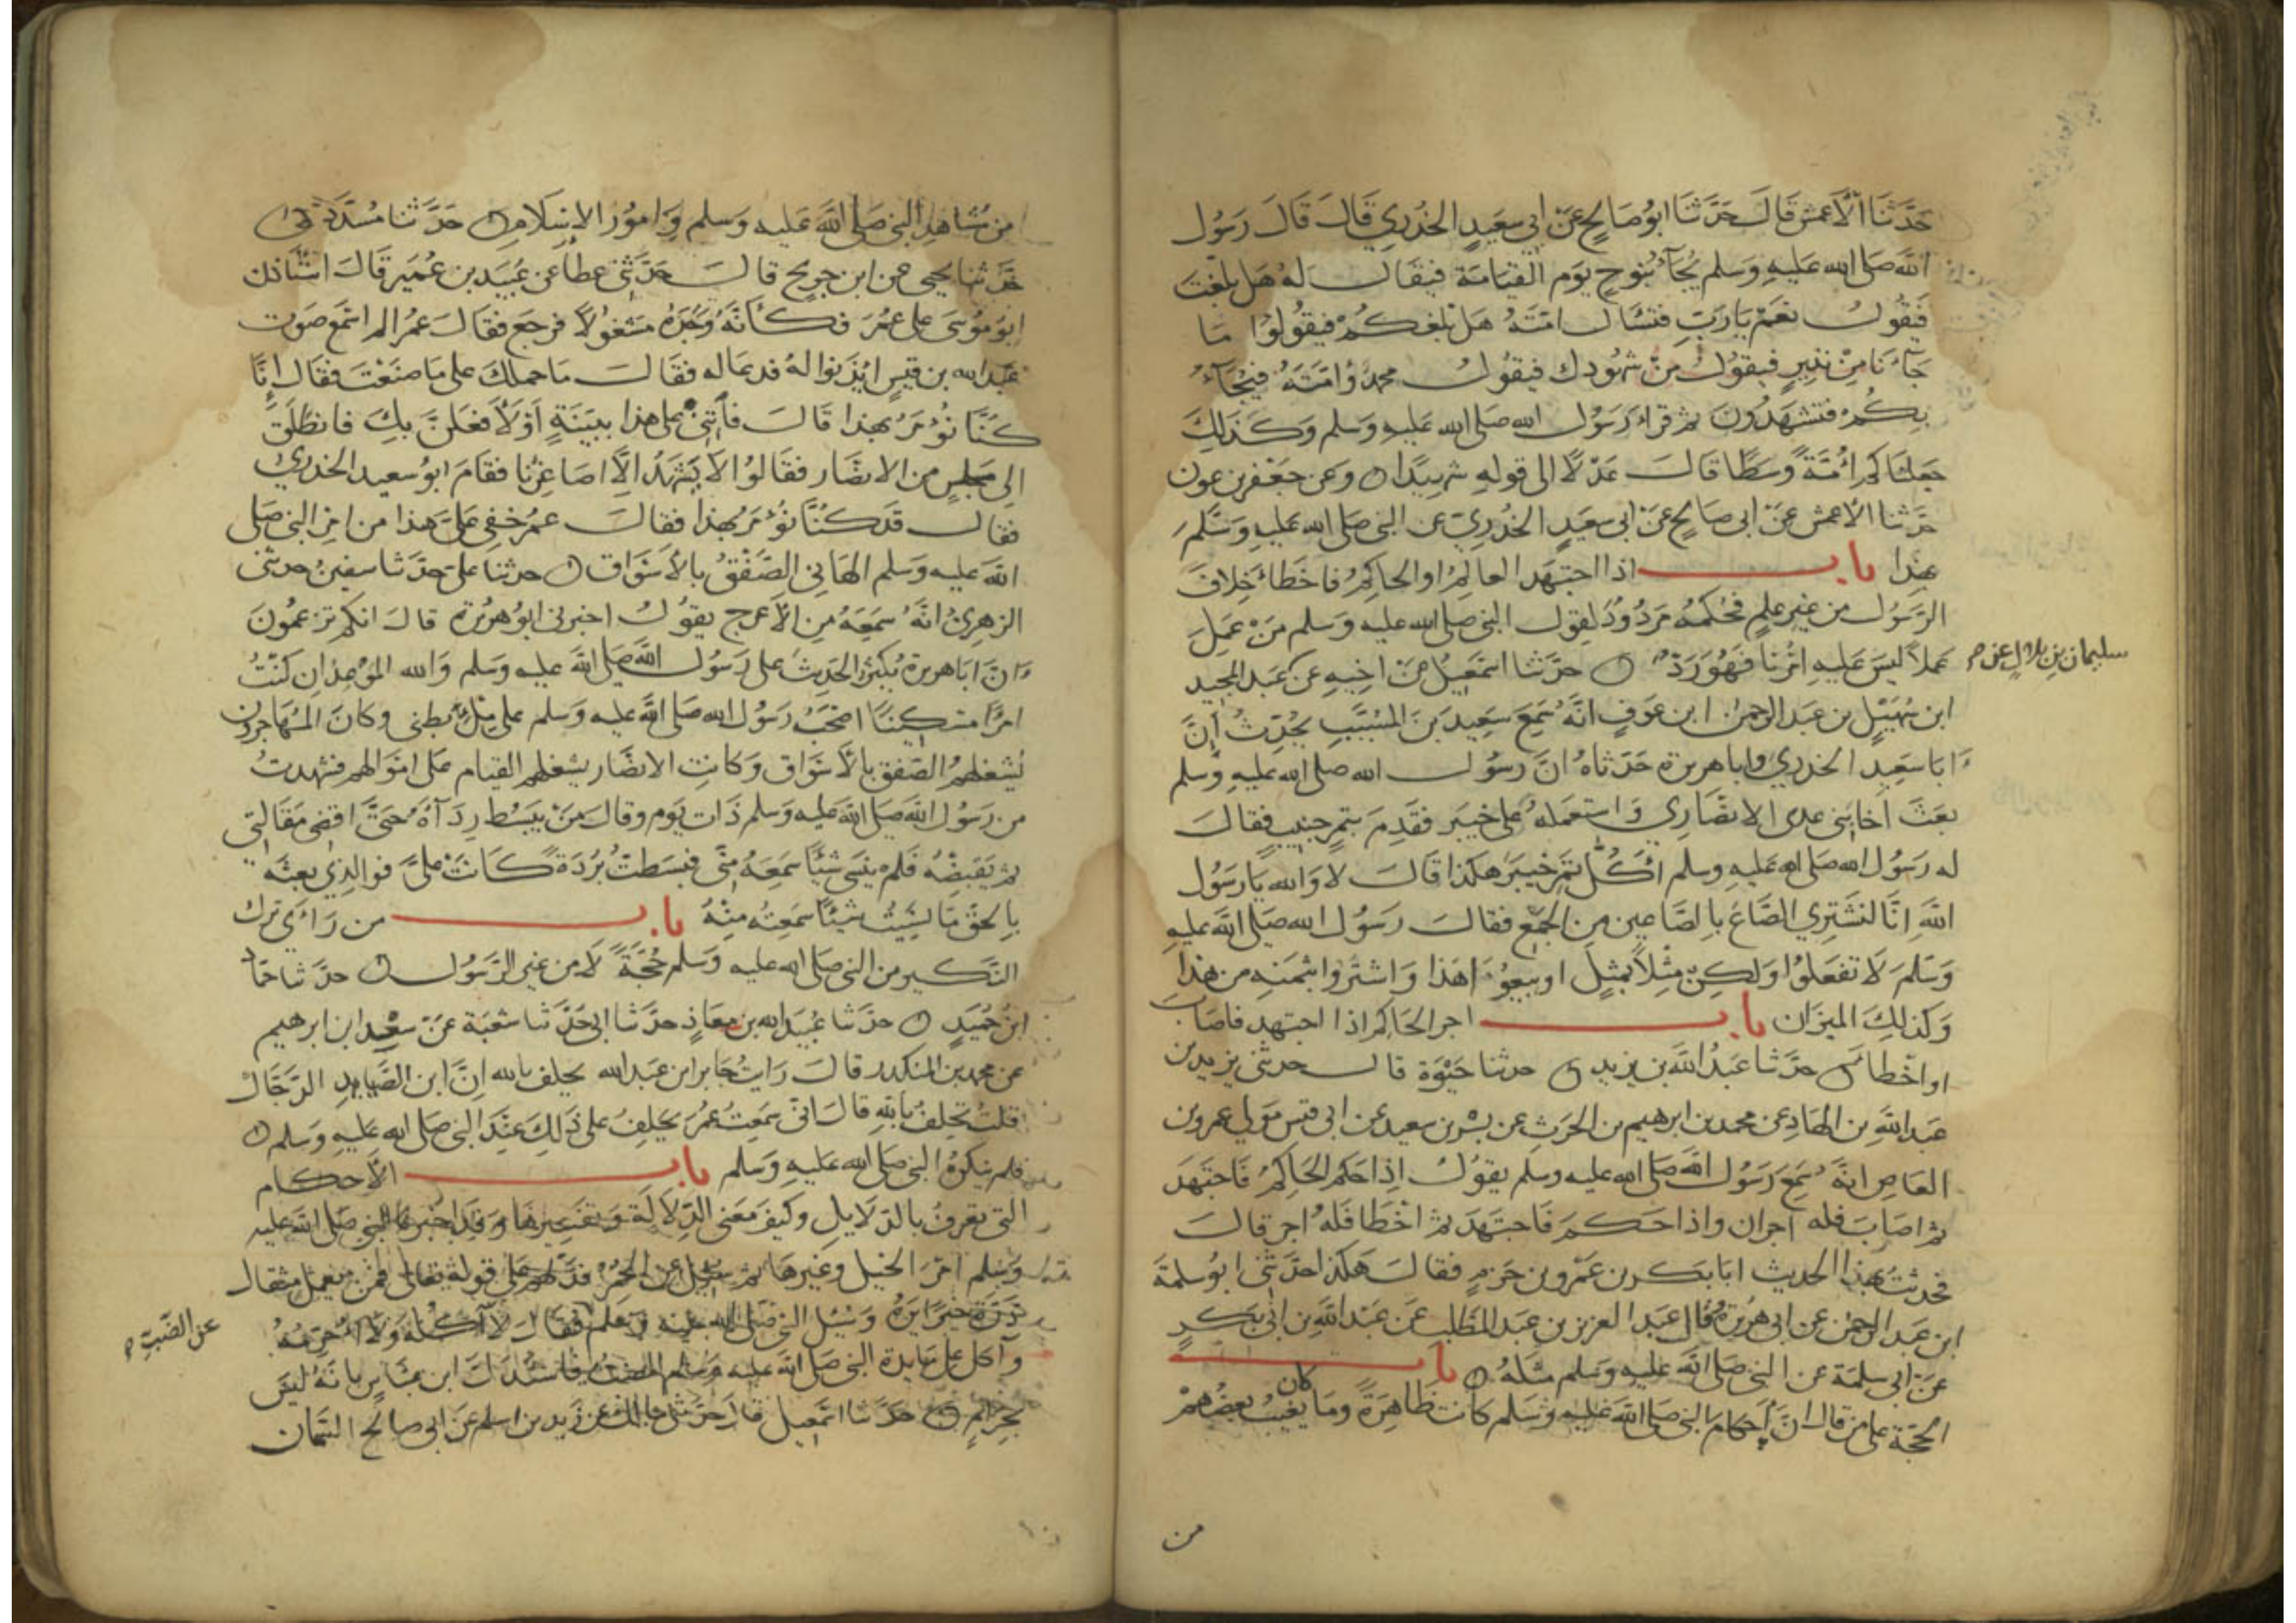 حَدَّثَنَا الأعمش قَالَ حَدَّثَنَا ابُو صَالحٍ عَنْ ابى سَعيدٍ الخُدْرِي قَالَ قَالَ رَسُول
الله صَلى الله عَليهِ وَسَلم يُجَآءُ بنُوحٍ يَومَ القيَامَة فيقَال لهُ هَل بلغتَ
فَيقُولُ نعَمْ يَارَبِّ فتسْأل امّتَهُ هَل بَلغكُمْ فيقُولُوا مَا
جَآءَنَا مِنْ نذيرٍ فيقوُلُ مَنْ شهُودك فيقُولُ محمدٌ وَامّتهُ فيُجَآءُ
بِكُمْ فتشهَدُونَ ثم قرأ رَسُول الله صَلى الله عَليهِ وسَلم وَكَذَلِكَ
جَعَلنَاكم اُمّةً وسَطًا قَالَ عَدْلاً الى قولهِ شهيدًا وَعن جَعْفر بن عون
حدّثنا الأعمش عَنْ ابى صَالحٍ عَنْ ابى سعيدٍ الخُدْرِيِّ عن النبى صَلى الله عَليهِ وَسَلمَ
بهذا باب اذا اجتهَد العالمُ او الحاكمُ فاخَطأ خِلافَ
الرّسُول من غيرِ علمٍ فحُكمهُ مَردُودٌ لقول النبى صلى الله عليه وَسَلم مَنْ عَمِلَ
عَملاً ليسَ عَليهِ امْرُنا فهُوَ رَدٌّ حدّثنا اسمَعيلُ عَنْ اخيهِ عَنْ عَبد المجيد
سليمان بن بلالٍ عن
ابن سُهَيْلٍ بن عَبد الرحمن ابن عَوفٍ انّهُ سَمِعَ سَعيد بنَ المسَيّبِ يُحدِّثُ أنَّ
ابَا سَعيدٍ الخدري وابا هريرة حَدّثاهُ انّ رسُول الله صلى الله عليه وسلم
بعَثَ اخا بَنى عدى الانصَاري وَاستعمَلهُ على خيبَر فقَدِمَ بتمرٍ جنيبٍ فقالَ
له رَسُول الله صَلى الله عَليه وسلم اَكُلُّ تمرِ خيبَرَ هكذا قَالَ لا وَالله يَارَسُول
اللهِ انَّا لنشتَرِي الصّاعَ باِلصّاعين مِن الجمْعِ فقالَ رسُول الله صَلى الله عليهِ
وَسَلمَ لَا تفعَلوُا وَلكِن مِثْلاً بمثْلٍ او بيعُوا هَذا وَاشترُوا بثمنهِ من هذا
وَكذلكَ الميزَان باب اجر الحَاكم اذا اجتهد فاصَابَ
او اخْطأ حدّثنا عَبدُ اللهِ بن يزيد حدثنا حَيْوَة قال حدثنى يزيد بن
عَبد اللهِ بن الهَادِ عن محمد بن ابرهيم بن الحرَثِ عن بسْر بن سعيد عن ابى قيس مَولى عمرو بن
العَاصِ انّهُ سَمِعَ رَسُول اللهِ صَلى الله عليه وسلم يقوُلُ اِذا حَكمَ الحَاكمُ فَاجتهَدَ
ثم اصَابَ فله اجران واذا حَكمَ فَاجتهَدَ ثم اخْطَا فلهُ اجر قالَ
فحدّثتُ بهذا الحديث ابَا بكر بن عَمْرو بن حَزمٍ فقالَ هَكَذا حدّثنى ابوُ سلمة
ابن عَبد الرحمن عن ابى هُريرة وَقال عَبد العزيز بن عَبد المطّلب عَن عَبد اللهِ بن ابى بَكرٍ
عَنْ ابى سلمَة عن النبى صَلى الله عليهِ وسَلم مثلهُ باب
الحجّة على من قال انَّ احكامَ النبى صَلى الله عَليهِ وسَلم كانت ظَاهِرَةً وما كان يغيبُ بعضُهمْ
من
من مشَاهدِ النبى صَلى الله عَليه وَسَلم وَامُورْ الاسْلامِ حَدَّثَنا مُسَدّدٌ
حَدّثنا يحيى عن ابن جريجٍ قالَ حَدّثنى عطاءٌ عن عُبيد بن عُمَيرٍ قَالَ استأذن
ابو مُوسَى على عمُرَ فكأنّهُ وَجَدهُ مشغُولاً فرجَعَ فقَالَ عمُر الم اسمَع صَوت
عَبد الله بن قيسٍ ايْذنوا لهُ فدعَا له فقالَ مَا حملكَ على مَا صنَعْتَ فقال اِنَّا
كُنَّا نُؤمَرُ بهذا قَالَ فأتنى على هذا ببيّنةٍ اَوْ لأفعَلنَّ بكَ فانطَلقَ
الى مَجلسٍ من الانصَار فقالوُا لا يَشهَدُ اِلَّا اصَاغرُنا فقامَ ابوُ سعيد الخدريُّ
فقال قد كُنَّا نُؤمَرُ بهذا فقالَ عمرُ خفِى عَلىَّ هَذا من امْرِ النبى صَلى
الله عليه وَسَلم الهَانى الصَّفْقُ بالأسْوَاق حدثنا علىّ حدّثنا سفينُ حدثنى
الزهرىُّ انّهُ سَمعَهُ مِن الأعرج يقوُلُ اخبرنى ابوُ هريرة قالَ انكم تزعمُونَ
انّ ابَا هريرة يُكثرُ الحَديثَ على رسُول الله صَلى الله عليه وسَلم وَالله الموعدُ اِن كنتُ
امرأً مسكينًا اصْحَبُ رَسُول الله صَلى الله عليه وَسَلم على مِلْءِ بطنى وكَانَ المُهَاجرون
يُشغلهمُ الصّفق بالأسْوَاق وَكَانتِ الانصَار يشغلهمُ القيام عَلى امْوَالهم فشهدتُ
من رسُول الله صَلى الله عَليه وسَلم ذَات يَوم وقالَ مَنْ يبَسُط رِدَآءَهُ حَتّى اقضى مَقَالتى
ثم يَقبضْهُ فَلمْ ينسَى شيئًا سَمعَهُ مِنّى فبسَطتُ بُرْدَةً كَانَتْ علىَّ فوالذي بعثهُ
باِلحقِّ مَا نسِيتُ شيئًا سمعتُه مِنْهُ باب من رَاءَى ترك
النّكير من النبى صَلى الله عليه وَسَلم حُجّةً لَا من غير الرّسُول حدّثنا حمّاد
ابنُ حُمَيدٍ حدّثنا عُبيد الله بن معَاذٍ حدّثنا ابى حَدّثنا شعْبَة عَنْ سعْدِ ابن ابرهيم
عن محمد بن المنكدر قالَ رَايتُ جَابر ابن عَبد الله يحلف بالله انَّ ابن الصّيايدِ الدّجّال
قلتُ تحلِفُ باللهِ قالَ انى سمعتُ عمُرَ يحلفِ على ذَلِكَ عِندَ النبى صَلى الله عَليهِ وَسَلم
فلم ينكرهُ النبى صَلى الله عَليهِ وَسَلم باب الأحكام
التى تعرفُ بالدلَايل وكيفَ مَعنى الدّلالَة وَتفسِيرهَا وَقد اخبرَ النبى صَلى الله عليه
وَسلم امْرَ الخيل وغيرهَا ثم سُئل عن الحُمُر فدَلهم على قولهِ تعَالى فمَنْ يعْمل مثقال
ذَرّةٍ خيرًا يَرهُ وَسُئِلَ النبى صَلى الله عليه وَسَلم فقالَ لا آكُله وَلا اُحرّمهُ
عن الضّبّ
وآكل على مايدة النبى صَلى الله عَليه وَسَلم الضبُّ فاسْتَدلّ ابن عبّاسٍ بانّهُ ليسَ
بحرَامٍ حَدّثنا اسمَعيل قال حَدّثنى مالك عن زَيد بن اسلم عَنْ ابى صالح السَّمان